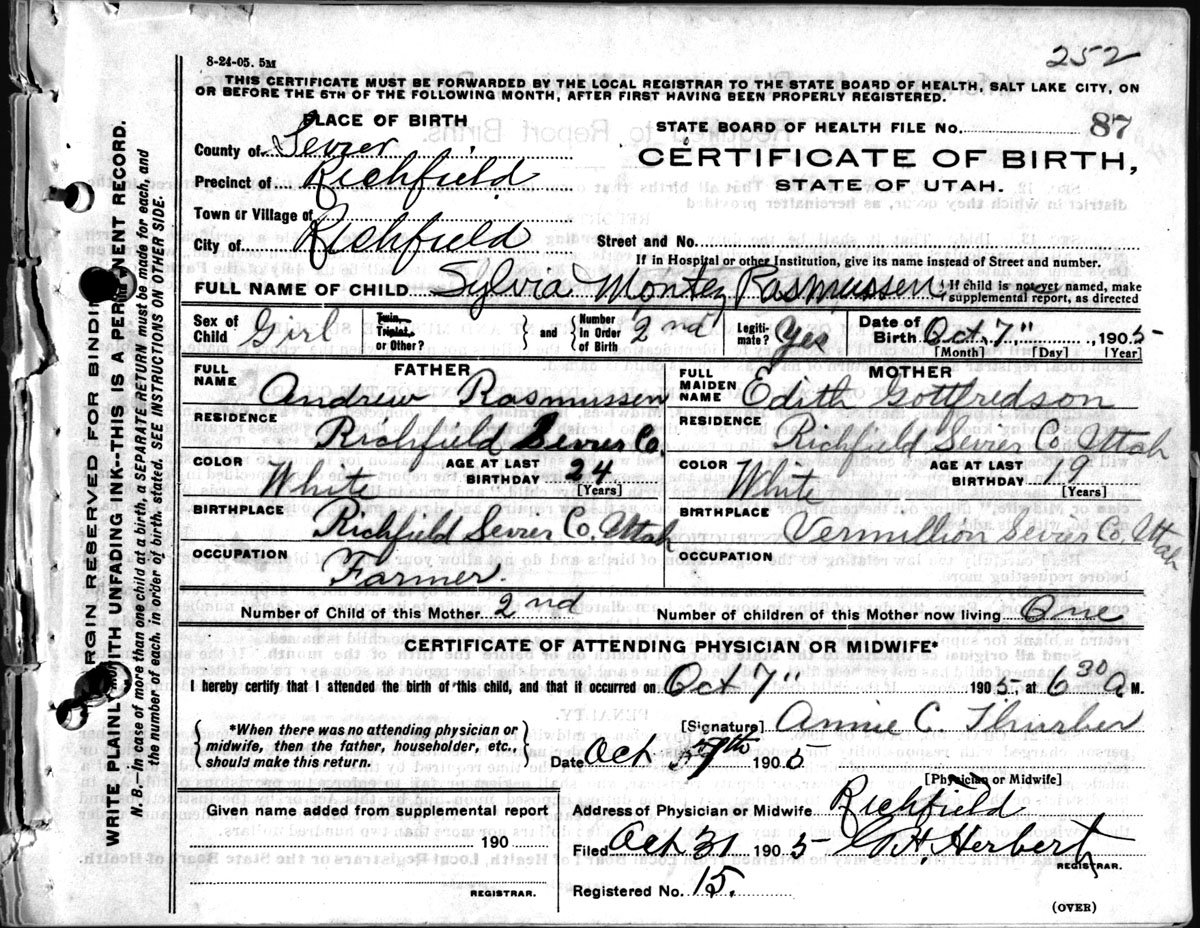 252
8-24-05. 5M
THIS CERTIFICATE MUST BE FORWARDED BY THE LOCAL REGISTRAR TO THE STATE BOARD OF HEALTH, SALT LAKE CITY, ON
OR BEFORE THE 5TH OF THE FOLLOWING MONTH, AFTER FIRST HAVING BEEN PROPERLY REGISTERED.
PLACE OF BIRTH
STATE BOARD OF HEALTH FILE No. 87
County of Sevier
CERTIFICATE OF BIRTH,
Precinct of Richfield
STATE OF UTAH.
Town or Village of
City of Richfield
Street and No.
If in Hospital or other Institution, give its name instead of Street and number.
FULL NAME OF CHILD Sylvia Montez Rasmussen
If child is not yet named, make
supplemental report, as directed
Sex of Child Girl
Twin, Triplet, or Other?
and
Number in Order of Birth 2nd
Legiti-mate? Yes
Date of Birth Oct. 7", 1905
[Month] [Day] [Year]
FATHER
FULL NAME Andrew Rasmussen
RESIDENCE Richfield Sevier Co.
COLOR White
AGE AT LAST BIRTHDAY 24
[Years]
BIRTHPLACE Richfield Sevier Co. Utah
OCCUPATION Farmer.
MOTHER
FULL MAIDEN NAME Edith Gottfredson
RESIDENCE Richfield Sevier Co. Utah
COLOR White
AGE AT LAST BIRTHDAY 19
[Years]
BIRTHPLACE Vermillion Sevier Co. Utah
OCCUPATION
Number of Child of this Mother 2nd
Number of children of this Mother now living One
CERTIFICATE OF ATTENDING PHYSICIAN OR MIDWIFE*
I hereby certify that I attended the birth of this child, and that it occurred on Oct 7" 1905, at 6 30 a M.
*When there was no attending physician or
midwife, then the father, householder, etc.,
should make this return.
[Signature] Annie C Thurber
Date Oct 1905
[Physician or Midwife]
Given name added from supplemental report
190
REGISTRAR.
Address of Physician or Midwife Richfield
Filed Oct 31 1905 G. H. Herbert
REGISTRAR.
Registered No. 15.
(OVER)
MARGIN RESERVED FOR BINDING
WRITE PLAINLY WITH UNFADING INK--THIS IS A PERMANENT RECORD.
N. B.--In case of more than one child at a birth, a SEPARATE RETURN must be made for each, and
the number of each, in order of birth, stated. SEE INSTRUCTIONS ON OTHER SIDE.